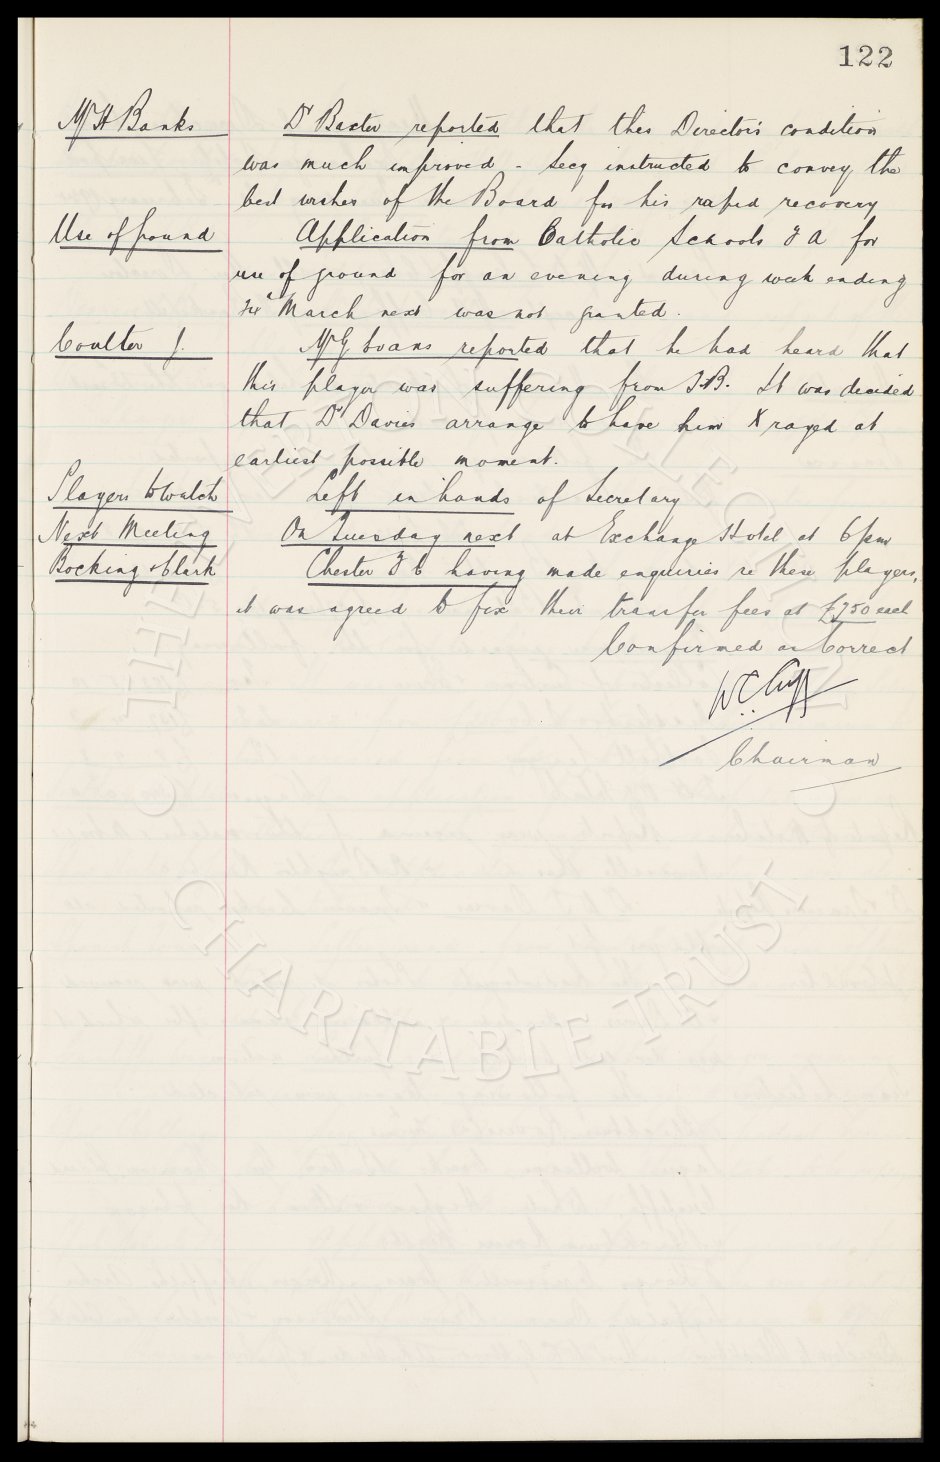 122
Mr H Banks Dr Baxter reported that this Director's condition
was much improved - Secy instructed to convey the
best wishes of the Board for his rapid recovery
Use of ground Application from Catholic Schools F A for
use of ground for an evening during week ending
March next was not granted.
Coulter J. Mr G Evans reported that he had heard that
this player was suffering from T.B. It was decided
that Dr Davies arrange to have him X rayed at
earliest possible moment.
Players to watch Left in hands of Secretary
Next Meeting On Tuesday next at Exchange Hotel at 6 pm
Bocking & Clark Chester F C having made enquiries re these players,
it was agreed to fix their transfer fees at £750 each
Confirmed as Correct
W.C. Cuff
Chairman
THE EVERTON COLLECTION
CHARITABLE TRUST